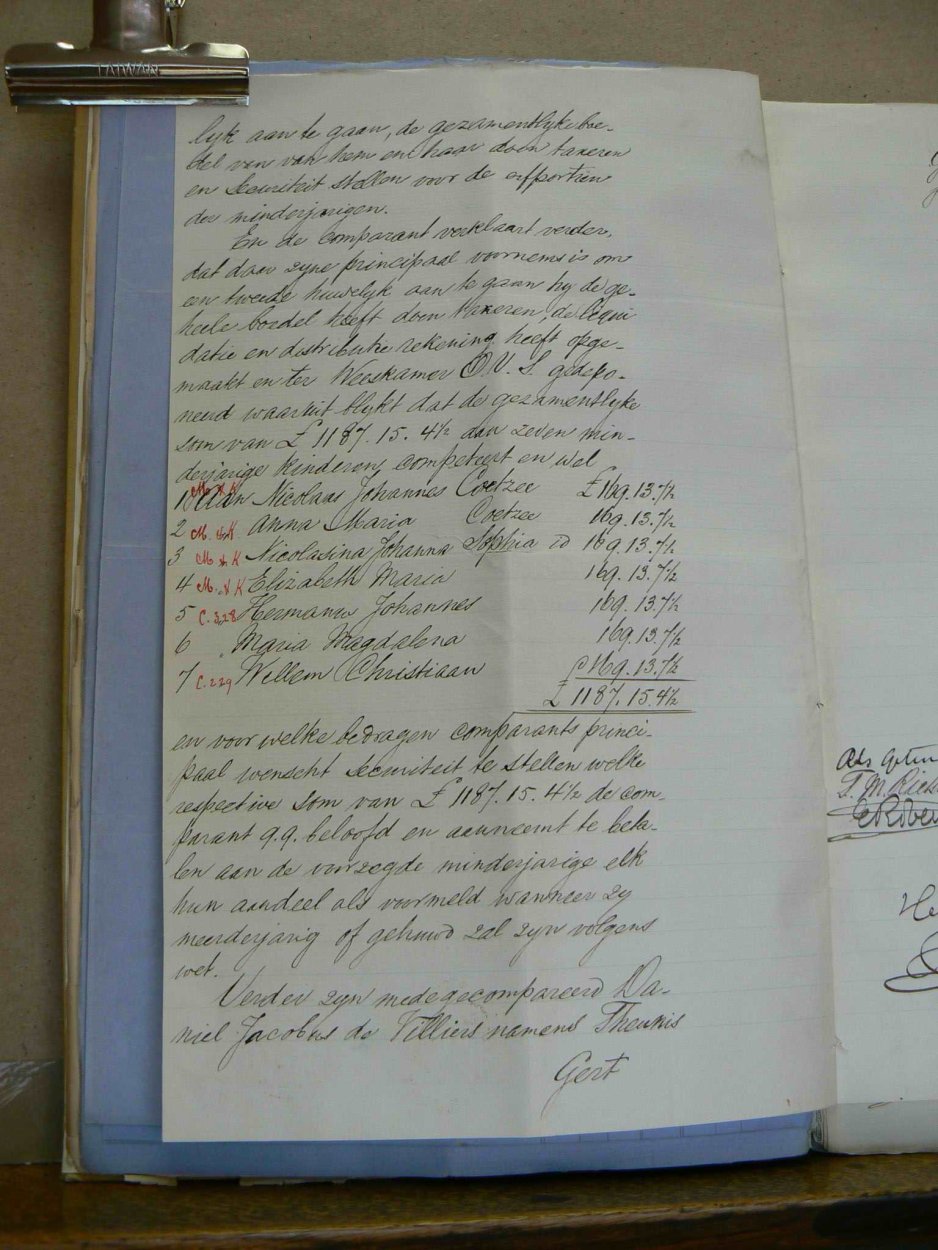 TAIWAN
lijk aan te gaan, de gezamentlyke boe-
del van van hem en haar doen taxeren
en Securiteit stellen voor de erfportien
der minderjarigen.
En de Comparant verklaart verder,
dat daar zyne principaal voornemens is om
een tweede huwelyk aan te gaan hy de ge-
heele boedel heeft doen taxeren, de liqui
datie en distributie rekening heeft opge-
maakt en ter Weeskamer O.V.S. gedepo-
neerd waaruit blykt dat de gezamentlyke
som van £1187.15.4½ aan zeven min-
derjarige kinderen, competeert en wel
1 M. & K Aan Nicolaas Johannes Coetzee £169.13.7½
2 M. & K Anna Maria Coetzee 169.13.7½
3 M & K Nicolasina Johanna Sophia id 169.13.7½
4 M. & K Elizabeth Maria 169.13.7½
5 C.328 Hermanus Johannes 169.13.7½
6 Maria Magdalena 169.13.7½
7 C.229 Willem Christiaan £169.13.7½
£1187.15.4½
en voor welke bedragen comparants princi-
paal wenscht Securiteit te stellen welke
respective som van £1187.15.4½ de com-
parant q.q. beloofd en aanneemt te beta-
len aan de voorzegde minderjarige elk
hun aandeel als voormeld wanneer zy
meerderjarig of gehuwd zal zyn volgens
wet.
Verder zyn medegecompareerd Da-
niel Jacobus de Villiers namens Theunis
Gert
Als Getui